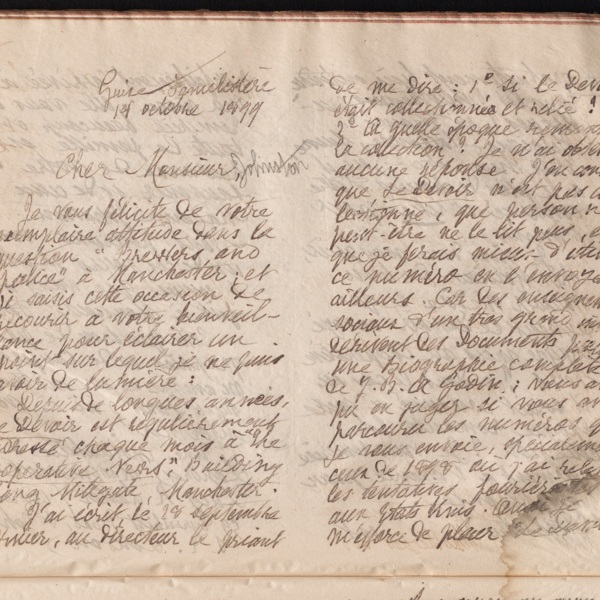 Guise Familistère
18 octobre 1899
Cher Monsieur Johnston
Je vous félicite de votre
exemplaire attitude dans la
question "Dressers and
à Manchester; et
saisis cette occasion de
recourir à votre bienveil-
lance pour éclairer un
point sur lequel je ne puis
avoir de lumière:
Depuis de longues années,
Le Devoir est régulièrement
adressé chaque mois à "the
cooperative News" Building
Long Millgate Manchester.
J'ai écrit, le 18 septembre
dernier, au directeur le priant
de me dire: 1° si le Dev
était collectionné et relié?
2° à quelle époque
la collection? Je n'ai obt
aucune réponse. J'en con
que Le Devoir n'est pas c
lectionné, que personne n
peut-être ne le lit pas, e
que je ferais mieux d'éte
ce numéro ou l'envoy
ailleurs. Car des enseigne
sociaux d'un très grand in
dérivent des Documents p
une Biographie complète
de J. B. A. Godin; vous a
pu en juger si vous av
parcouru les numéros q
je vous envoie, spécialeme
ceux de 1898 où j'ai rel
les tentatives fouriér
aux Etats Unis.
m'efforce de placer